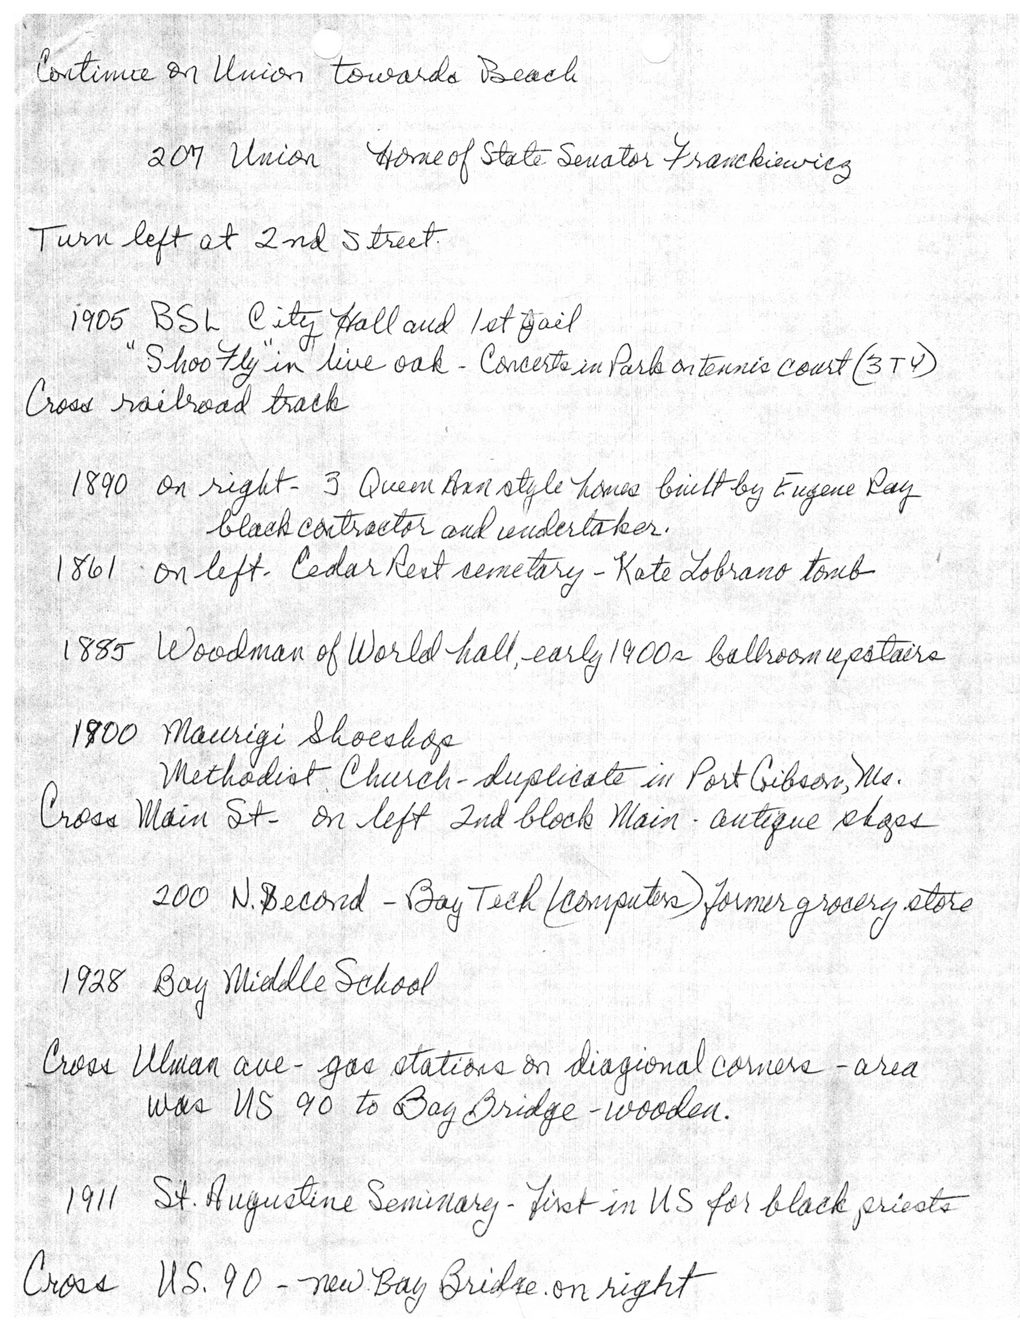 Continue on Union towards Beach
207 Union Home of State Senator Franckiewicz
Turn left at 2nd Street.
1905 BSL City Hall and 1st Jail
"Shoo Fly" in live oak - Concerts in Park on tennis court (3 T Y)
Cross railroad track
1890 on right - 3 Queen Ann style homes built by Eugene Ray
black contractor and undertaker.
1861 on left - Cedar Rest cemetary - Kate Lobrano tomb
1885 Woodman of World hall, early 1900s ballroom upstairs
1900 Maurigi Shoeshop
Methodist Church - duplicate in Port Gibson, Ms.
Cross Main St - on left 2nd block Main - antique shops
200 N. Second - Bay Tech (computers) former grocery store
1928 Bay Middle School
Cross Ulman ave - gas stations on diagional corners - area
was US 90 to Bay Bridge - wooden.
1911 St. Augustine Seminary - first in US for black priests
Cross U.S. 90 - new Bay Bridge on right